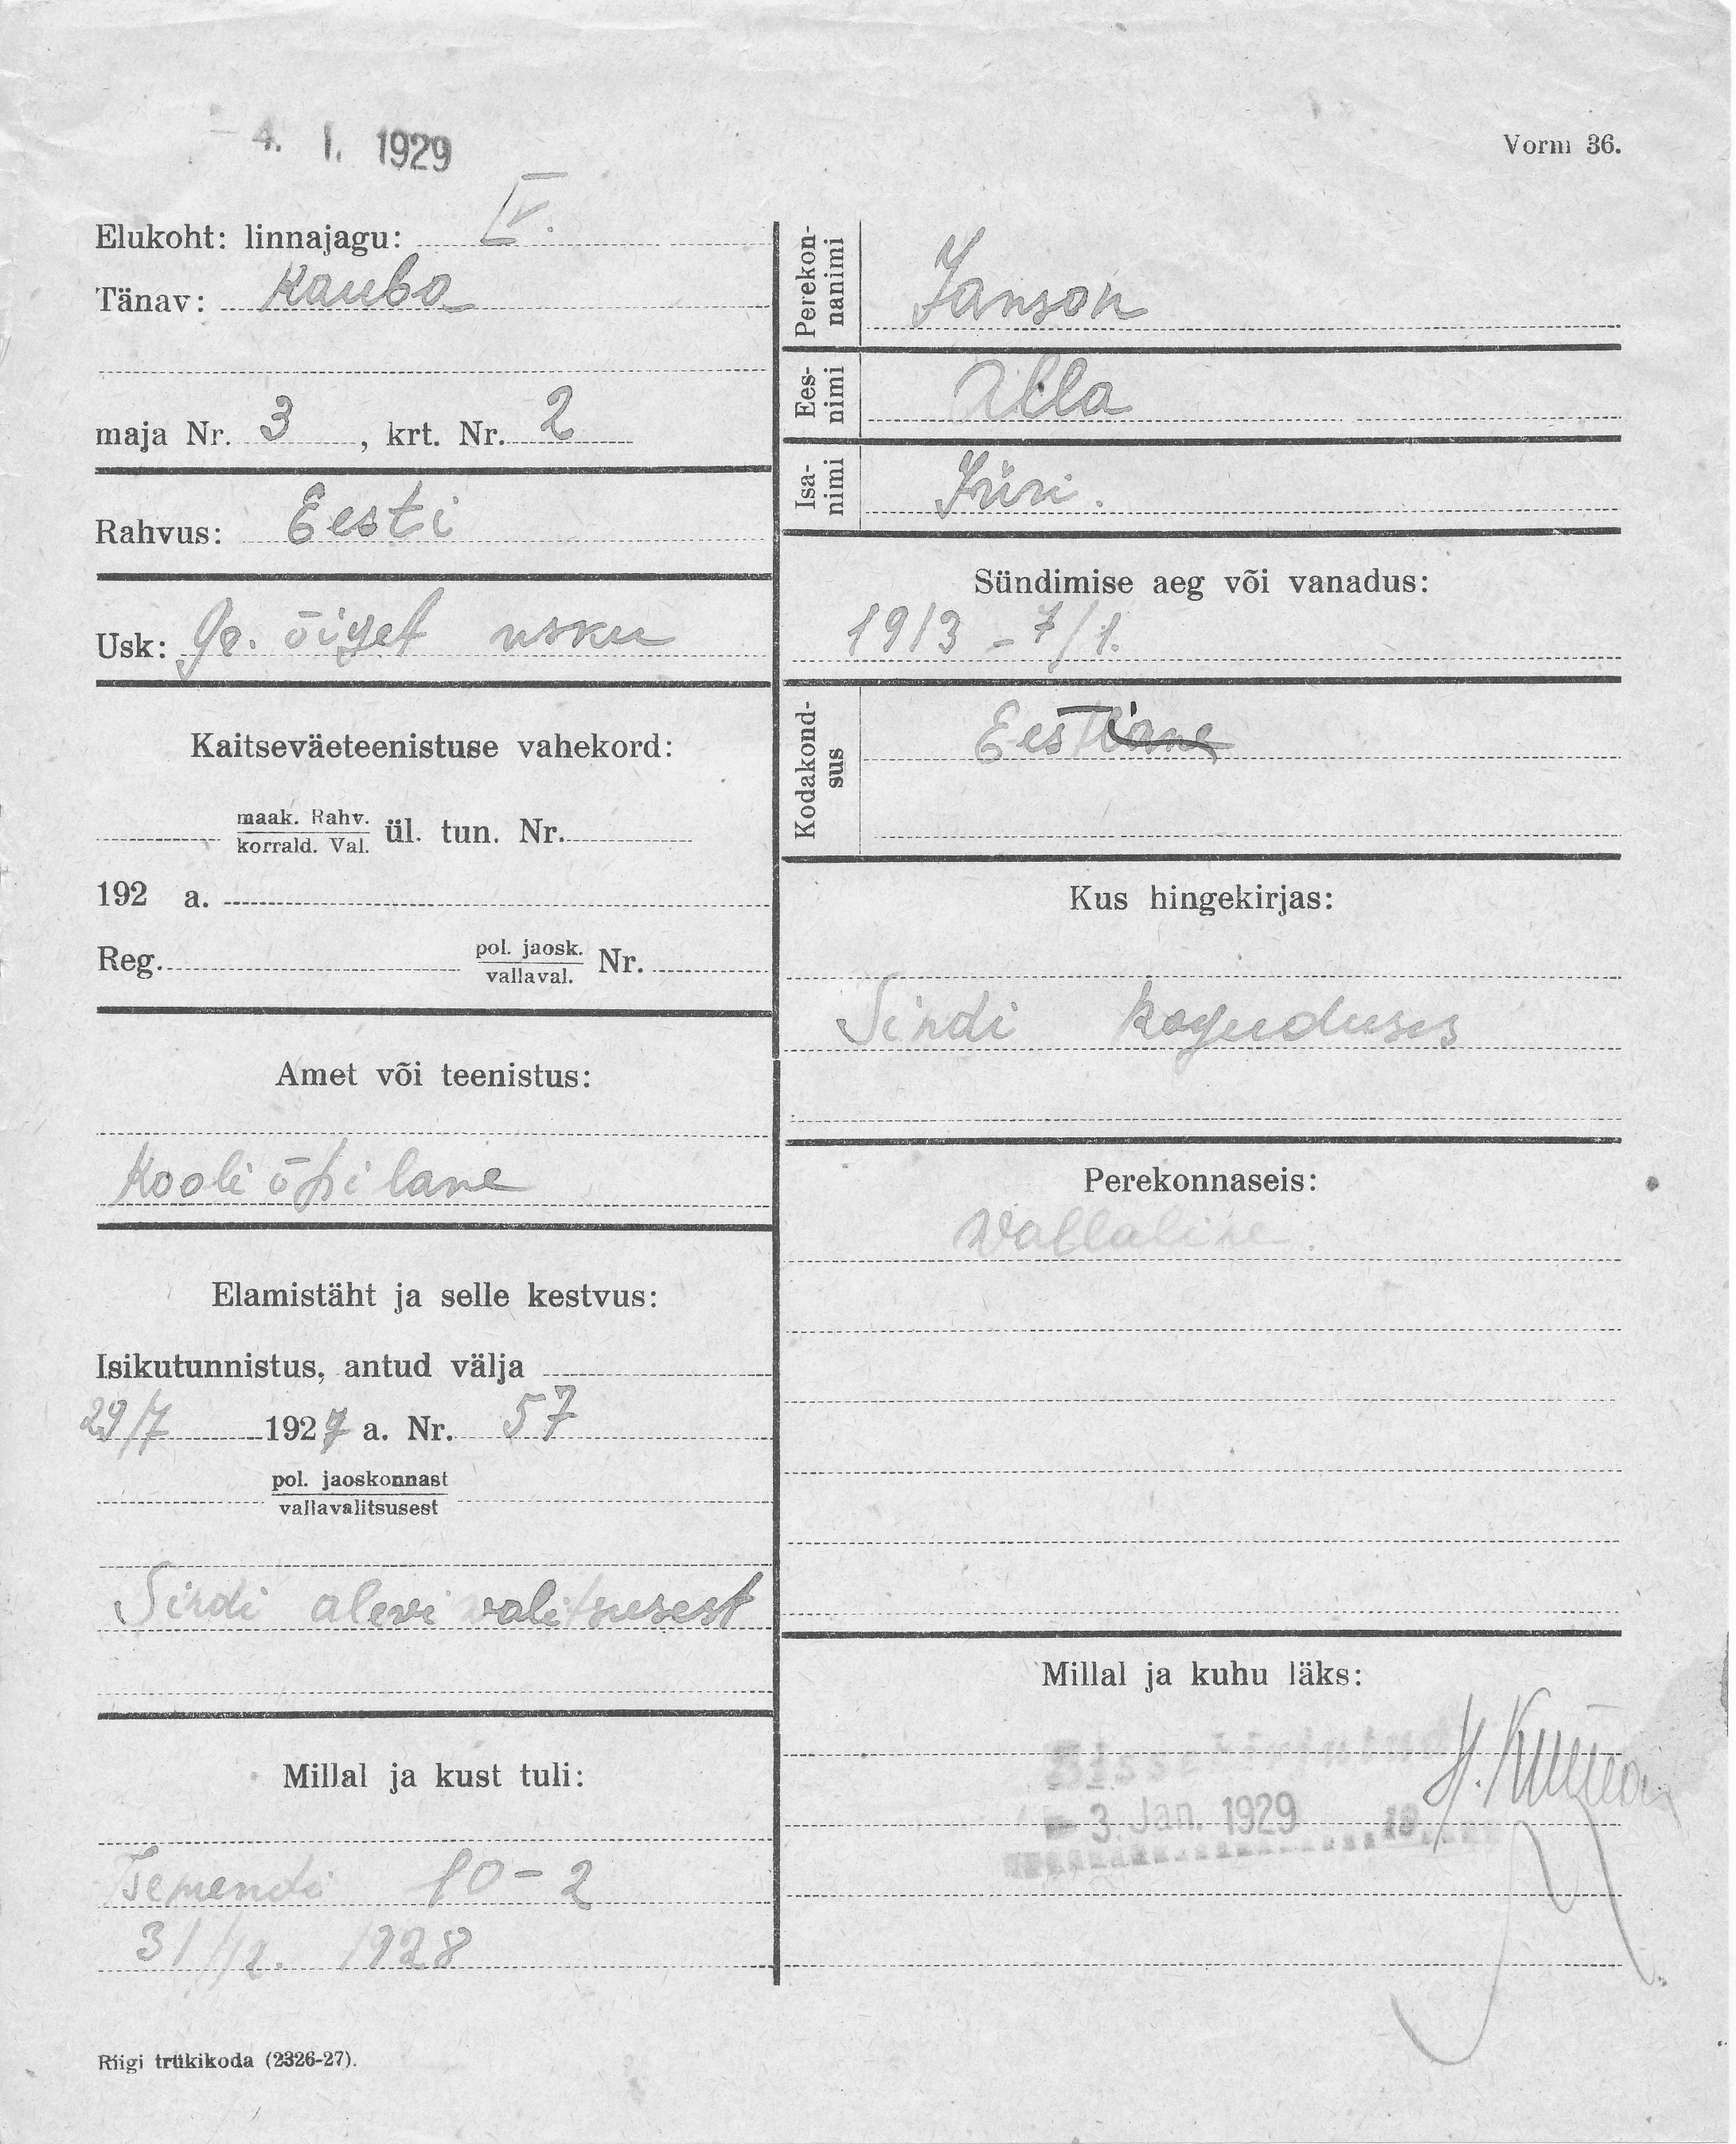 4. I. 1929
Vorm 36.
Elukoht: linnajagu: IV.
Tänav: Kauba
maja Nr. 3 , krt. Nr. 2
Rahvus: Eesti
Usk: Ap. õiget usku
Kaitseväeteenistuse vahekord:
maak. Rahv.
korrald. Val. ül. tun. Nr.
192 a.
Reg. pol. jaosk.
vallaval. Nr.
Amet või teenistus:
Kooli õpilane
Elamistäht ja selle kestvus:
Isikutunnistus, antud välja
29/7 1927 a. Nr. 57
pol. jaoskonnast
vallavalitsusest
Sindi alevi valitsusest
Millal ja kust tuli:
Tsemendi 10-2
31/12. 1928
Riigi trükikoda (2326-27).
Perekon-
nanimi
Janson
Ees-
nimi
Alla
Isa-
nimi
Jüri.
Sündimise aeg või vanadus:
1913 - 7/1.
Kodakond-
sus
Eestlane
Kus hingekirjas:
Sindi koguduses
Perekonnaseis:
Vallaline.
Millal ja kuhu läks:
Sissekirjutud
- 3. Jan. 1929 19